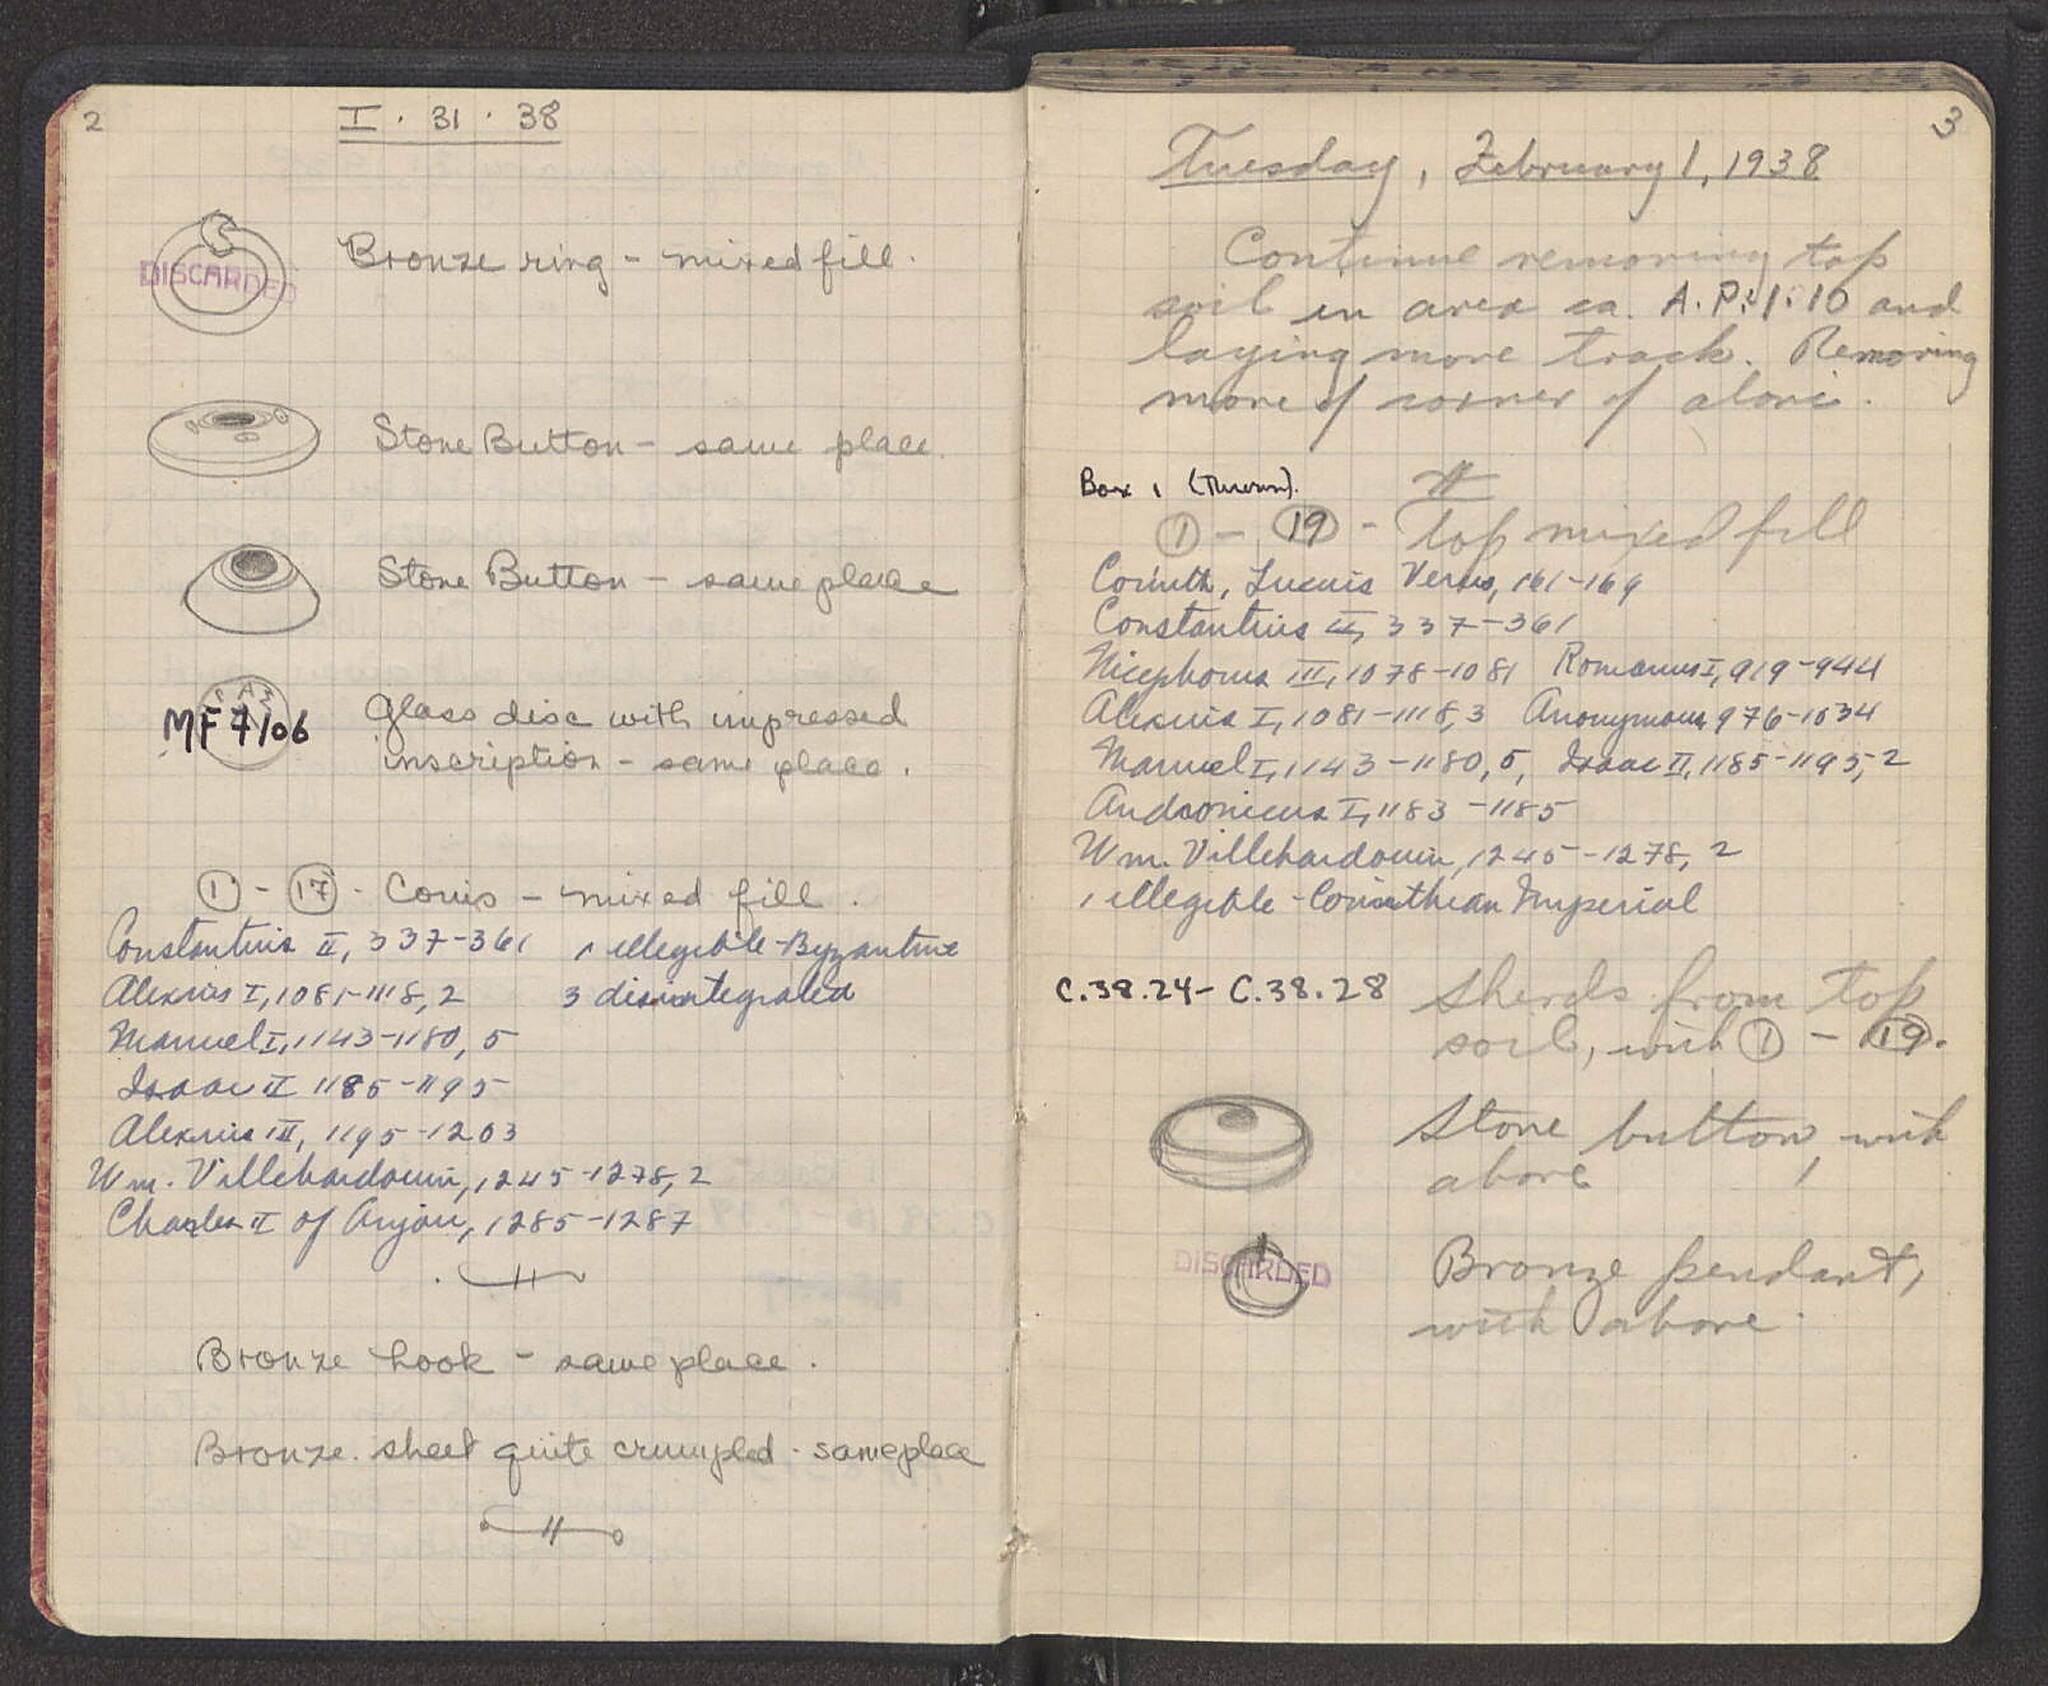 2
I . 31 . 38
DISCARDED
Bronze ring - mixed fill.
Stone Button - same place.
Stone Button - same place
MF 7106
Glass disc with impressed
inscription - same place.
1 - 17 - Coins - mixed fill.
Constantius II, 337-361 1 illegible-Byzantine
Alexius I, 1081-1118, 2 3 disintegrated
Manuel I, 1143-1180, 5
Isaac II 1185-1195
Alexius III, 1195-1203
Wm. Villehardouin, 1245-1278, 2
Charles II of Anjou, 1285-1287
Bronze hook - same place.
Bronze sheet quite crumpled - same place
3
Tuesday, February 1, 1938
Continue removing top
soil in area ca. A.P:1.10 and
laying more track. Removing
more of corner of above.
Box 1
1 - 19 - Top mixed fill
Corinth, Lucius Verus, 161-169
Constantius II, 337-361
Nicephorus III, 1078-1081 Romanus I, 919-944
Alexius I, 1081-1118, 3 Anonymous 976-1034
Manuel I, 1143-1180, 5, Isaac II, 1185-1195, 2
Andronicus I, 1183-1185
Wm. Villehardouin, 1245-1278, 2
1 illegible - Corinthian Imperial
C.38.24 - C.38.28 Sherds from top
soil, with 1 - 19.
Stone button, with
above
DISCARDED
Bronze pendant,
with above.